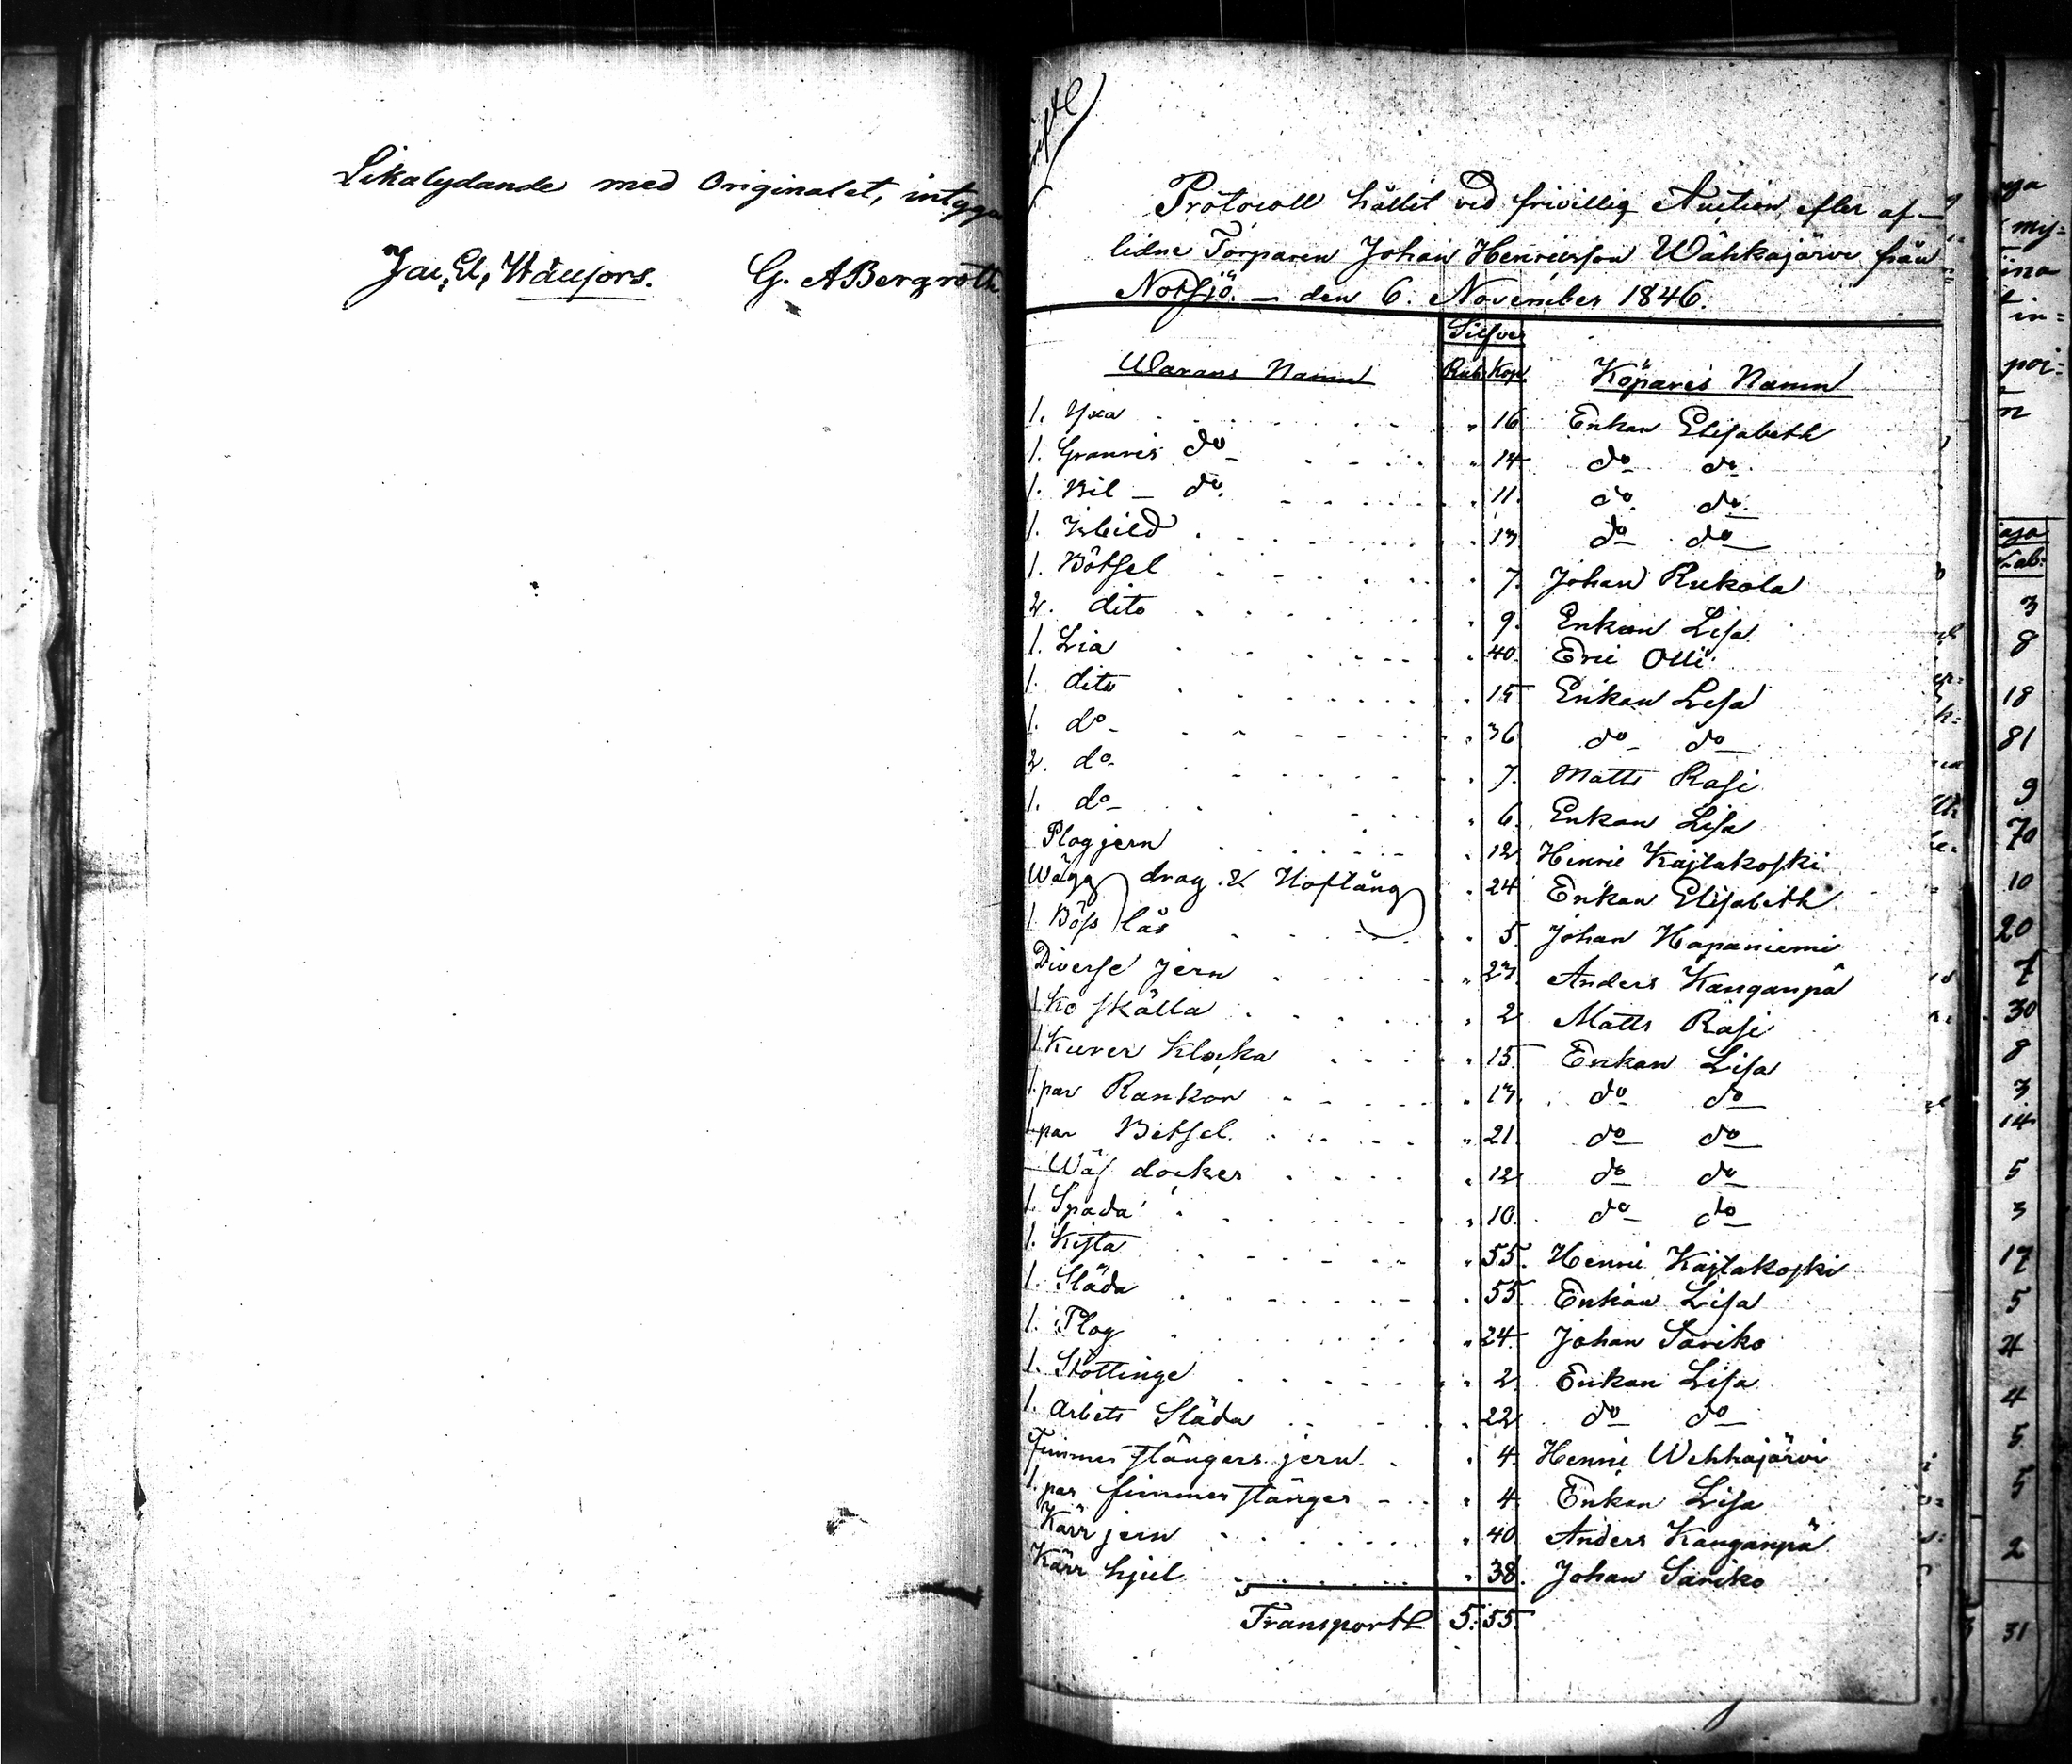 Likalydande med Originalet, intyga
G. A Bergroth
Protocoll hållit vid frivillig Auction efter af-
lidne Torparen Johan Henricsson Wähkajärvi från
Notsjö. — den 6. November 1846.
Silfver
Warans Namn Rub. Kop. Köpares Namn
1. Yxa " 16 Enkan Elisabeth
1. Granris do " 14 do do
1. Bil - do " 11. do do
1. Isbild " 13 do do
1. Bötsel " 7. Johan Rukola
2. dito " 9. Enkan Lisa
1. Lia " 40. Eric Olli
1. dito " 15 Enkan Lisa
1. do " 36 do do
2. do " 7. Matts Rasi
1. do " 6. Enkan Lisa
Plogjern " 12 Henric Kajtakoski
Wägg drag & Hoftång " 24 Enkan Elisabeth
1 Böss lås " 5. Johan Hapaniemi
Diverse jern " 23. Anders Kanganpä
1. Ko skälla " 2 Matts Rasi
1. Kurer Klocka " 15. Enkan Lisa
1. par Rankor " 13. do do
1 par Betsel " 21. do do
Wäf docker " 12 do do
1. Spada " 10. do do
1. Kista " 55. Henric Kajtakoski
1. Släda " 55. Enkan Lisa
1. Plog " 24. Johan Sariko
1. Stöttinge " 2. Enkan Lisa
1. arbets Släda " 22 do do
Fimmer stångers jern " 4. Henric Wehkajärvi
1. par fimmer stänger " 4. Enkan Lisa
Kärr jern " 40. Anders Kanganpä
Kärr hjul " 38. Johan Sariko
Transport 5. 55.
3
8
18
81
9
70
10
20
7
30
8
3
14
5
3
17
5
4
4
5
5
2
31